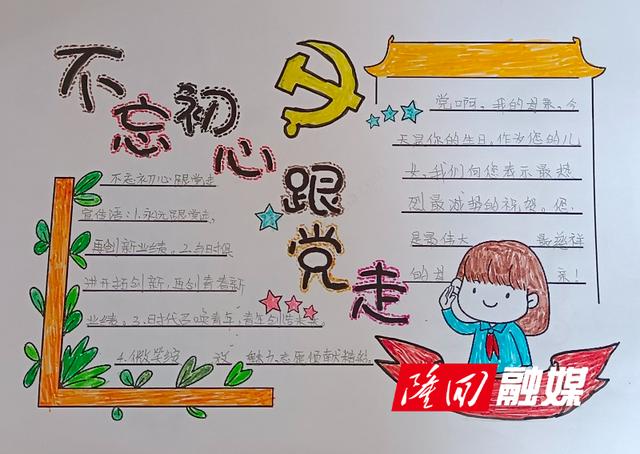 不忘初心
跟党走
不忘初心跟党走
宣传语:1.永远跟党走,
再创新业绩。2.与时俱
进开拓创新,再创青春新
业绩。3.时代召唤青年;青年创造未来
4.微笑 这 魅力志愿 献精彩
党啊,我的母亲,今
天是你的生日,作为您的儿
女,我们向您表示最热
烈最诚挚的祝贺。您,
是最伟大 最慈祥
的母 亲!
隆回融媒